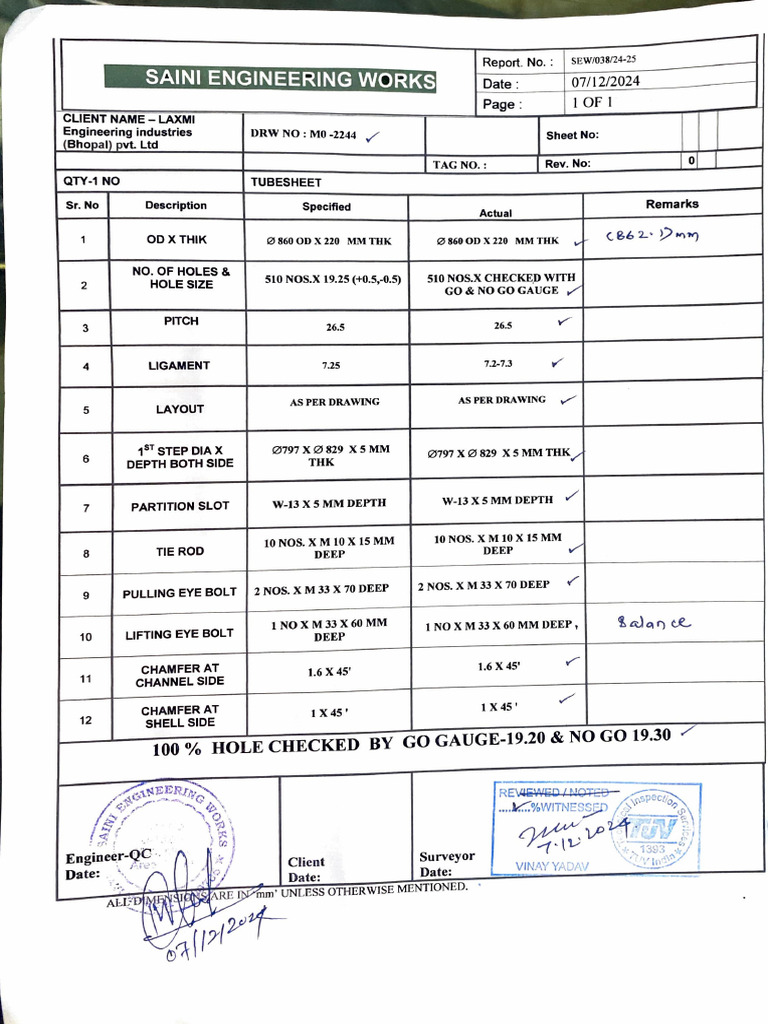 SAINI ENGINEERING WORKS
Report. No. : SEW/038/24-25
Date : 07/12/2024
Page : 1 OF 1
CLIENT NAME – LAXMI
Engineering industries
(Bhopal) pvt. Ltd
DRW NO : M0 -2244 ✓
Sheet No:
TAG NO. :
Rev. No: 0
QTY-1 NO TUBESHEET
Sr. No Description Specified Actual Remarks
1 OD X THIK Ø 860 OD X 220 MM THK Ø 860 OD X 220 MM THK ✓ (862.1)mm
2 NO. OF HOLES & HOLE SIZE 510 NOS.X 19.25 (+0.5,-0.5) 510 NOS.X CHECKED WITH GO & NO GO GAUGE ✓
3 PITCH 26.5 26.5 ✓
4 LIGAMENT 7.25 7.2-7.3 ✓
5 LAYOUT AS PER DRAWING AS PER DRAWING ✓
6 1ST STEP DIA X DEPTH BOTH SIDE Ø797 X Ø 829 X 5 MM THK Ø797 X Ø 829 X 5 MM THK ✓
7 PARTITION SLOT W-13 X 5 MM DEPTH W-13 X 5 MM DEPTH ✓
8 TIE ROD 10 NOS. X M 10 X 15 MM DEEP 10 NOS. X M 10 X 15 MM DEEP ✓
9 PULLING EYE BOLT 2 NOS. X M 33 X 70 DEEP 2 NOS. X M 33 X 70 DEEP ✓
10 LIFTING EYE BOLT 1 NO X M 33 X 60 MM DEEP 1 NO X M 33 X 60 MM DEEP , Balance
11 CHAMFER AT CHANNEL SIDE 1.6 X 45' 1.6 X 45' ✓
12 CHAMFER AT SHELL SIDE 1 X 45 ' 1 X 45 ' ✓
100 % HOLE CHECKED BY GO GAUGE-19.20 & NO GO 19.30 ✓
SAINI ENGINEERING WORKS
Engineer-QC
Date:
Client
Date:
Surveyor
Date:
REVIEWED / NOTED
..✓.....%WITNESSED
7.12.2024
VINAY YADAV
Inspection Services
TUV
1393
TUV India
ALL DIMENSIONS ARE IN 'mm' UNLESS OTHERWISE MENTIONED.
07/12/2024